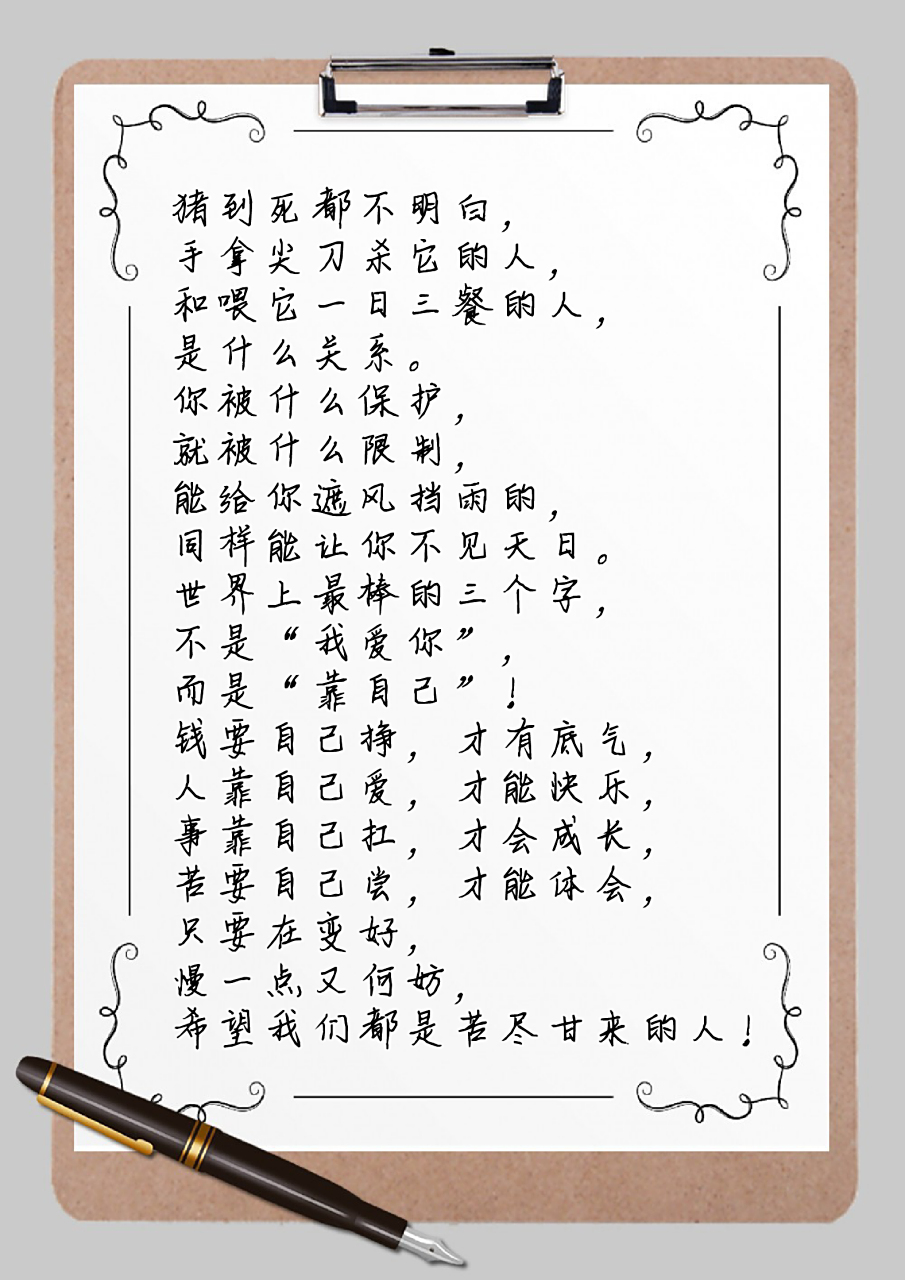 猪到死都不明白，
手拿尖刀杀它的人，
和喂它一日三餐的人，
是什么关系。
你被什么保护，
就被什么限制，
能给你遮风挡雨的，
同样能让你不见天日。
世界上最棒的三个字，
不是“我爱你”，
而是“靠自己”！
钱要自己挣，才有底气，
人靠自己爱，才能快乐，
事靠自己扛，才会成长，
苦要自己尝，才能体会，
只要在变好，
慢一点又何妨，
希望我们都是苦尽甘来的人！